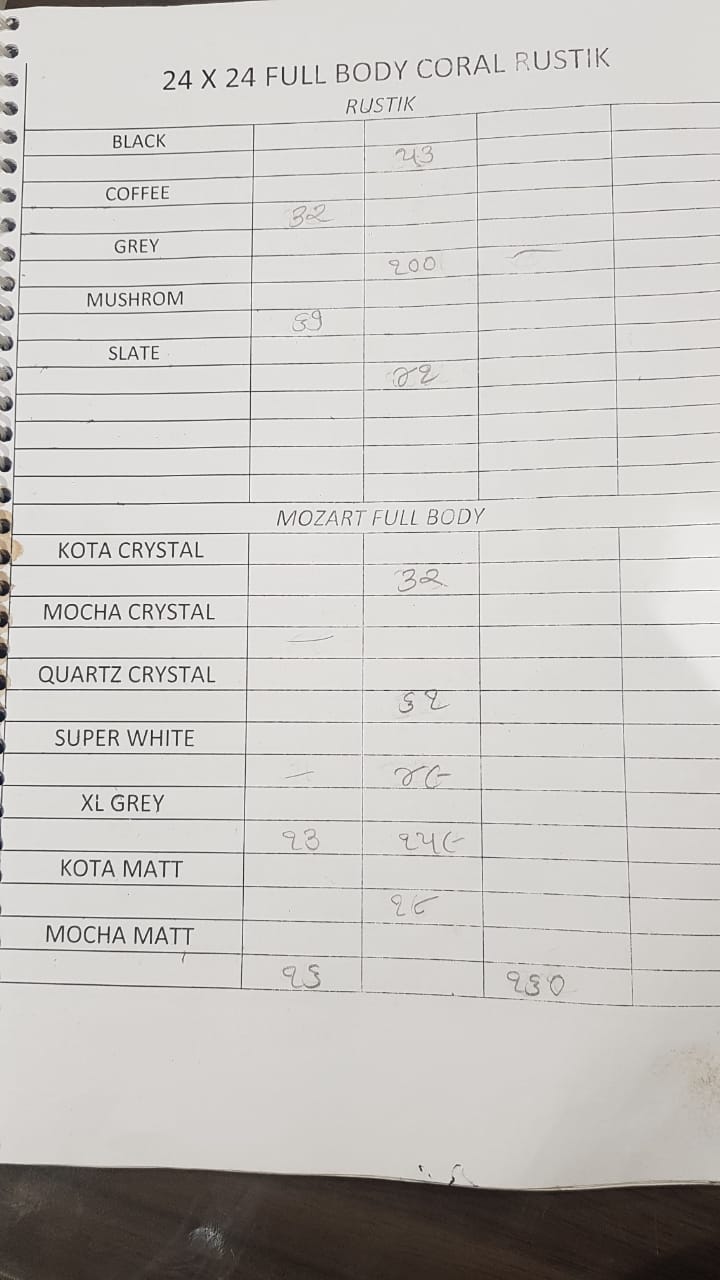 24 X 24 FULL BODY CORAL RUSTIK
RUSTIK
BLACK
૫૩
COFFEE
૩૨
GREY
૧૦૦
MUSHROM
૬૭
SLATE
MOZART FULL BODY
KOTA CRYSTAL
૩૨
MOCHA CRYSTAL
QUARTZ CRYSTAL
૬૧
SUPER WHITE
XL GREY
૧૩
KOTA MATT
MOCHA MATT
૧૬૦